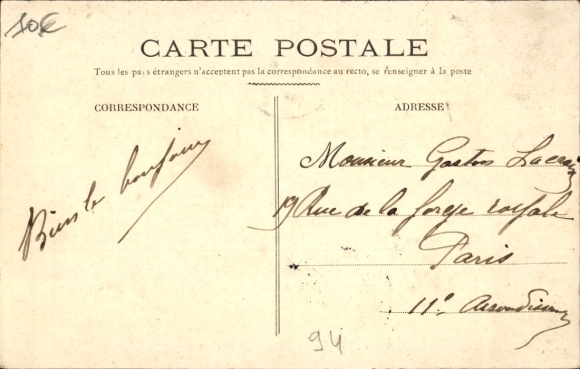 10€
CARTE POSTALE
Tous les pays étrangers n'acceptent pas la correspondance au recto, se renseigner à la poste
CORRESPONDANCE
ADRESSE
Bien le bonjour
Monsieur Gaston
19 Rue de la forge royale
Paris
11e
94